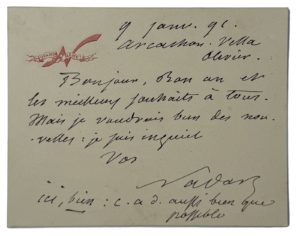 9 janv. 92.
Arcachon. Villa
Olivier.
Bonjour, Bon an et
les meilleurs souhaits à tous.
Mais je voudrais bien des nou-
velles : je suis inquiet
Vos
Nadar
ici, bien : c. a d. aussi bien que
possible